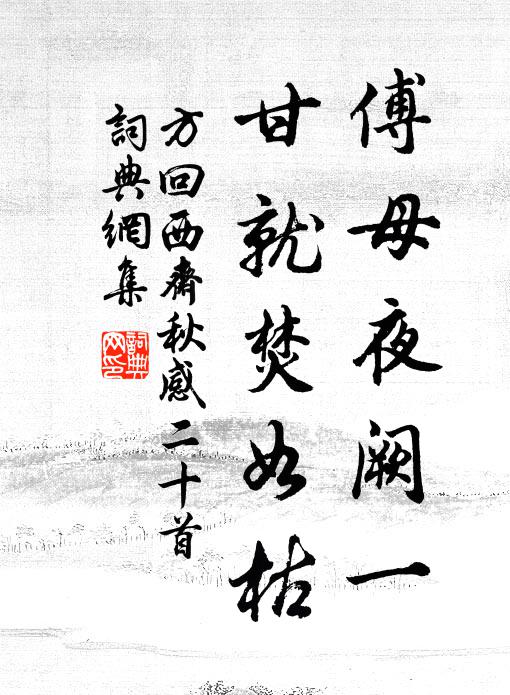 傅母夜阙一
甘就焚如枯
方回西齋秋感二十首
詞典網集
詞典網印